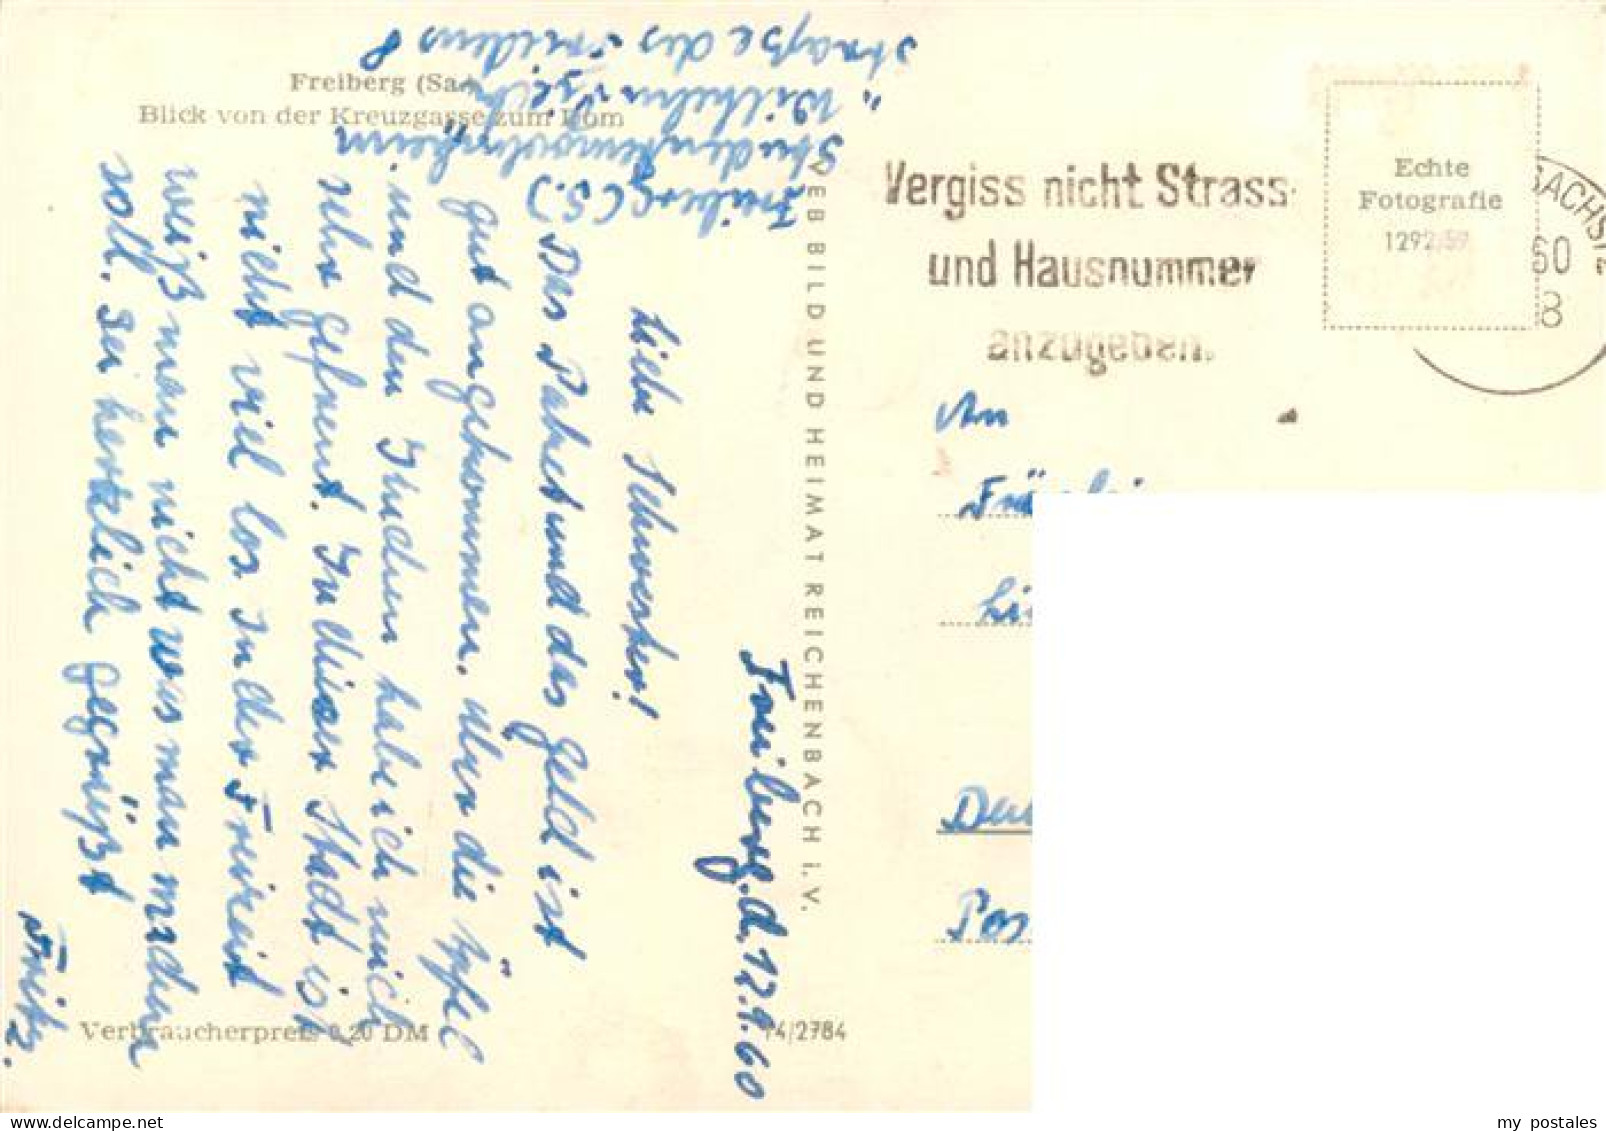 Freiberg (Sa.)
Blick von der Kreuzgasse zum Dom
Freiberg (S.)
Studentenwohnheim
"Wilhelm Pieck"
Straße des Friedens 8
Freiberg, d. 12.9.60
Liebe Schwester!
Das Paket und das Geld ist
gut angekommen. Über die Äpfel
und den Kuchen habe ich mich
sehr gefreut. In dieser Stadt ist
nicht viel los. In der Freizeit
weiß man nicht was man machen
soll. Sei herzlich gegrüßt
Fritz.
VEB BILD UND HEIMAT REICHENBACH I. V.
Verbraucherpreis 0,20 DM
14/2784
Vergiss nicht Strass-
und Hausnummer
anzugeben.
Echte
Fotografie
1292/59
SACHS
60
8
An